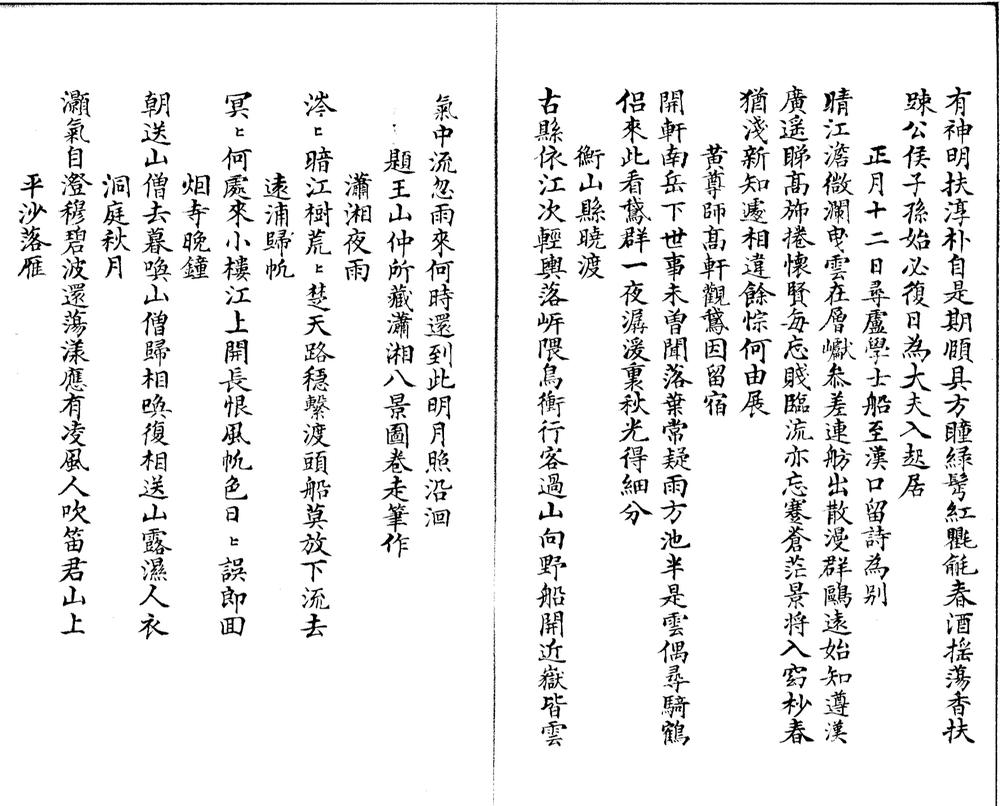 有神明扶淳朴自是期頤具方瞳緑髩紅氍毹春酒揺蕩香扶
踈公侯子孫始必復日為大夫入起居
正月十二日尋盧學士船至漢口留詩為别
晴江澹微瀾曳雲在層巘叅差連舫出散漫群鷗遠始知遵漢
廣遥睇髙斾捲懷賢每忘賤臨流亦忘蹇蒼茫景将入窈杪春
猶淺新知遽相違餘悰何由展
黄尊師髙軒觀鵞因留宿
開軒南岳下世事未曽聞落葉常疑雨方池半是雲偶尋騎鶴
侣來此看鵞群一夜潺湲裏秋光得細分
衡山縣曉渡
古縣依江次輕輿落㟁隈鳥衝行客過山向野船開近嶽皆雲
氣中流忽雨來何時還到此明月照沿洄
題王山仲所藏瀟湘八景圖巻走筆作
瀟湘夜雨
涔〻暗江樹荒〻楚天路穏繫渡頭船莫放下流去
遠浦歸帆
冥〻何處來小樓江上開長恨風帆色日〻誤郎回
烟寺晩鐘
朝送山僧去暮喚山僧歸相喚復相送山露濕人衣
洞庭秋月
灝氣自澄穆碧波還蕩漾應有凌風人吹笛君山上
平沙落雁